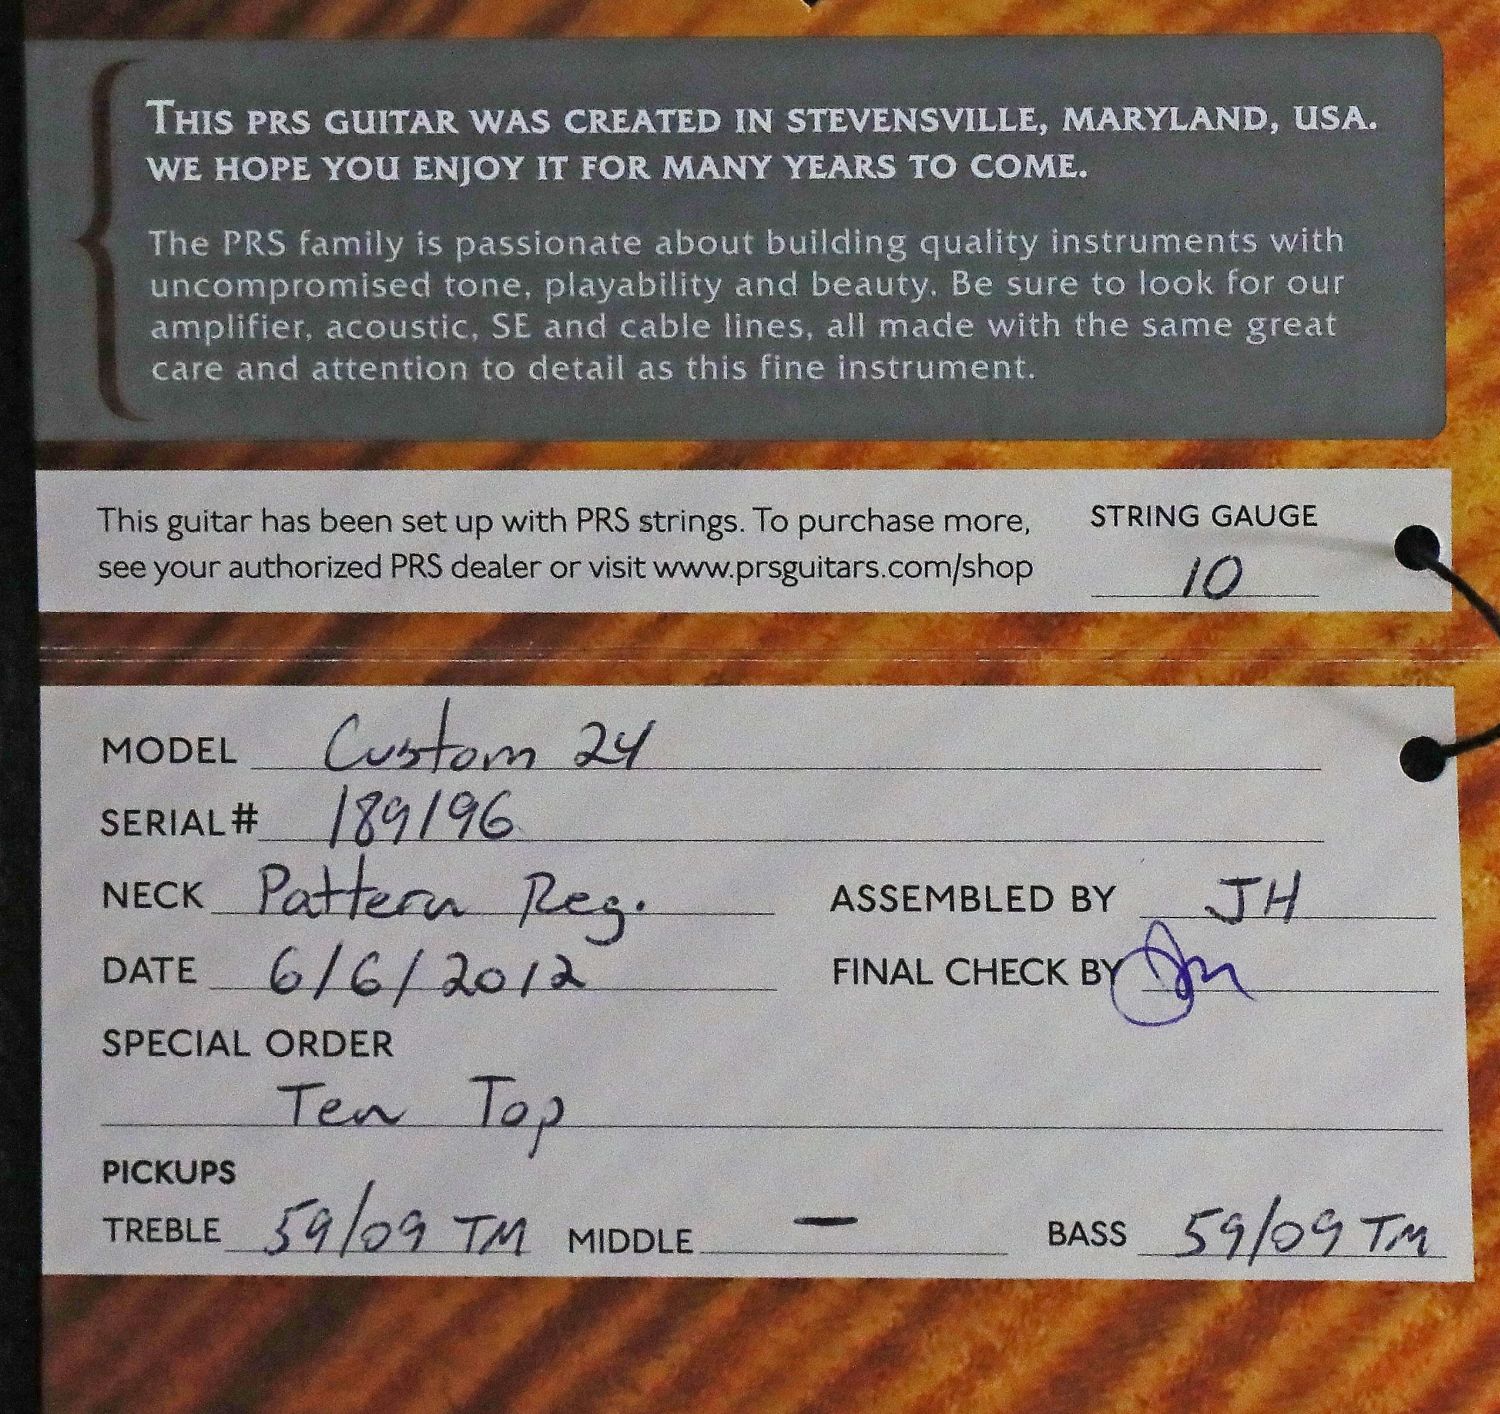 THIS PRS GUITAR WAS CREATED IN STEVENSVILLE, MARYLAND, USA.
WE HOPE YOU ENJOY IT FOR MANY YEARS TO COME.
The PRS family is passionate about building quality instruments with
uncompromised tone, playability and beauty. Be sure to look for our
amplifier, acoustic, SE and cable lines, all made with the same great
care and attention to detail as this fine instrument.
This guitar has been set up with PRS strings. To purchase more,
see your authorized PRS dealer or visit www.prsguitars.com/shop
STRING GAUGE
10
MODEL Custom 24
SERIAL# 189196
NECK Pattern Reg. ASSEMBLED BY JH
DATE 6/6/2012 FINAL CHECK BY
SPECIAL ORDER
Ten Top
PICKUPS
TREBLE 59/09 TM MIDDLE — BASS 59/09 TM